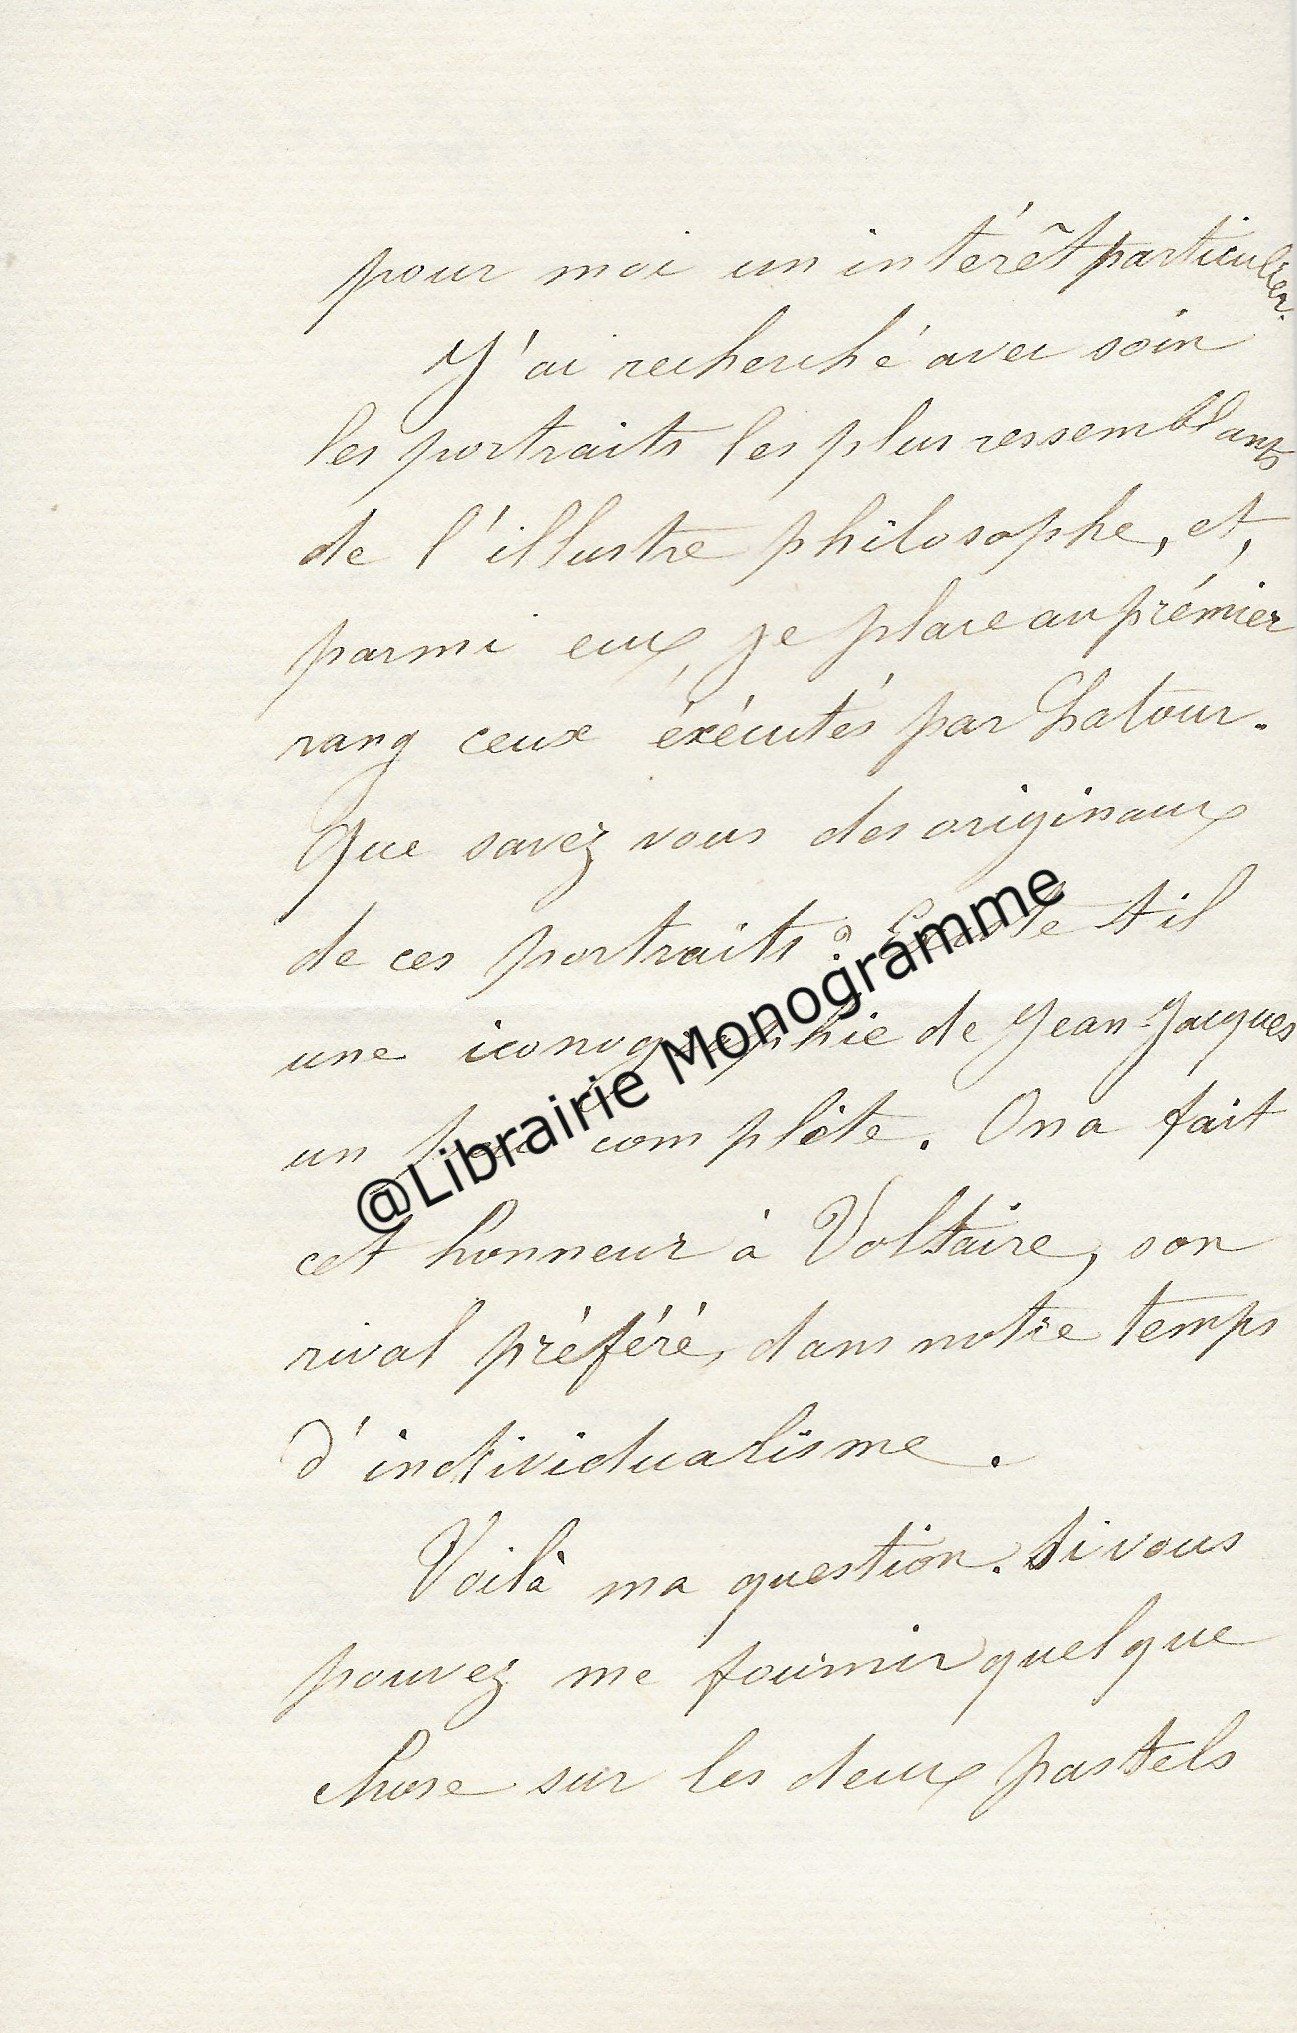 pour moi un intérêt particulier.
J'ai recherché avec soin
les portraits les plus ressemblants
de l'illustre philosophe, et,
parmi eux, je place au prémier
rang ceux éxécutés par Latour.
Que savez vous des originaux
de ces portraits? Existe t il
une iconographie de Jean-Jacques
un peu complète. On a fait
cet honneur à Voltaire, son
rival préféré, dans notre temps
d'individualisme.
Voilà ma question. Si vous
pouvez me fournir quelque
chose sur les deux pastels
@Librairie Monogramme